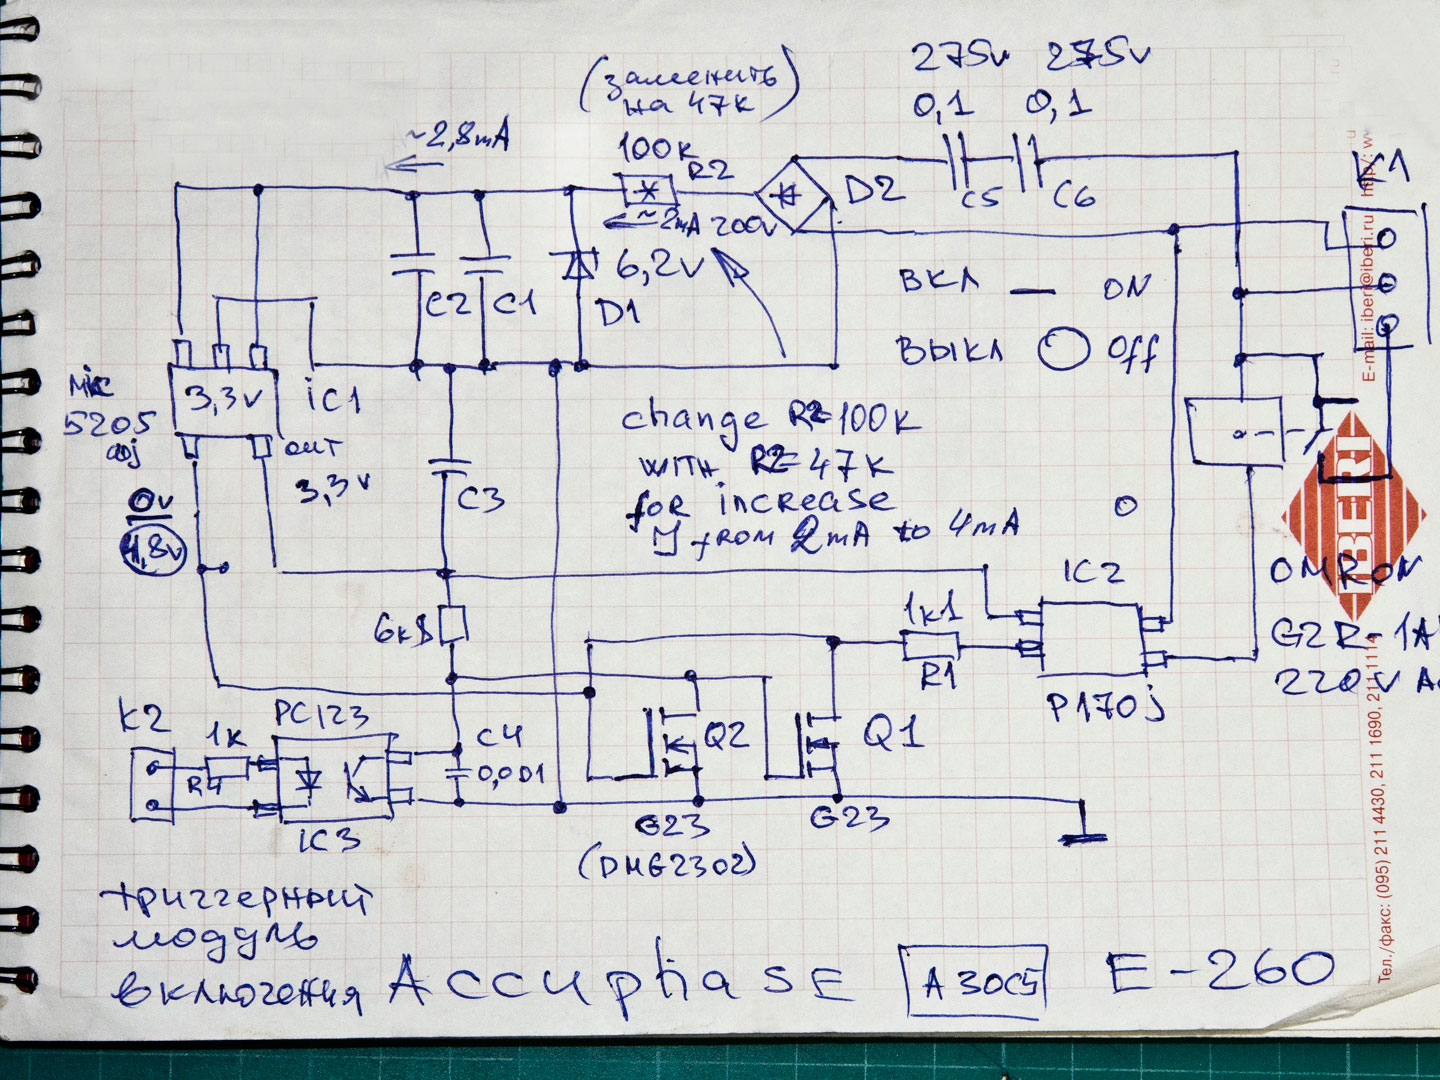 275v 275v
0,1 0,1
(заменить
на 47к)
~2,8mA
100k
R2
D2
C5
C6
K1
~2mA 200v
6,2v
D1
C2
C1
ВКЛ — ON
ВЫКЛ O Off
mic
5205
adj
3,3v
iC1
out
3,3v
0v
4,8v
C3
change R2=100k
with R2=47k
for increase
J from 2mA to 4mA
IC2
OMRON
6k8
1k1
R1
G2R-1A
220V AC
P170j
K2
1k
R4
PC123
IC3
C4
0,001
Q2
Q1
G23
(DMG2302)
G23
триггерный
модуль
включения
Accuphase
A30C5
E-260
IBERI
E-mail: iberi@iberi.ru http/: w
Тел./факс: (095) 211 4430, 211 1690, 211 1114